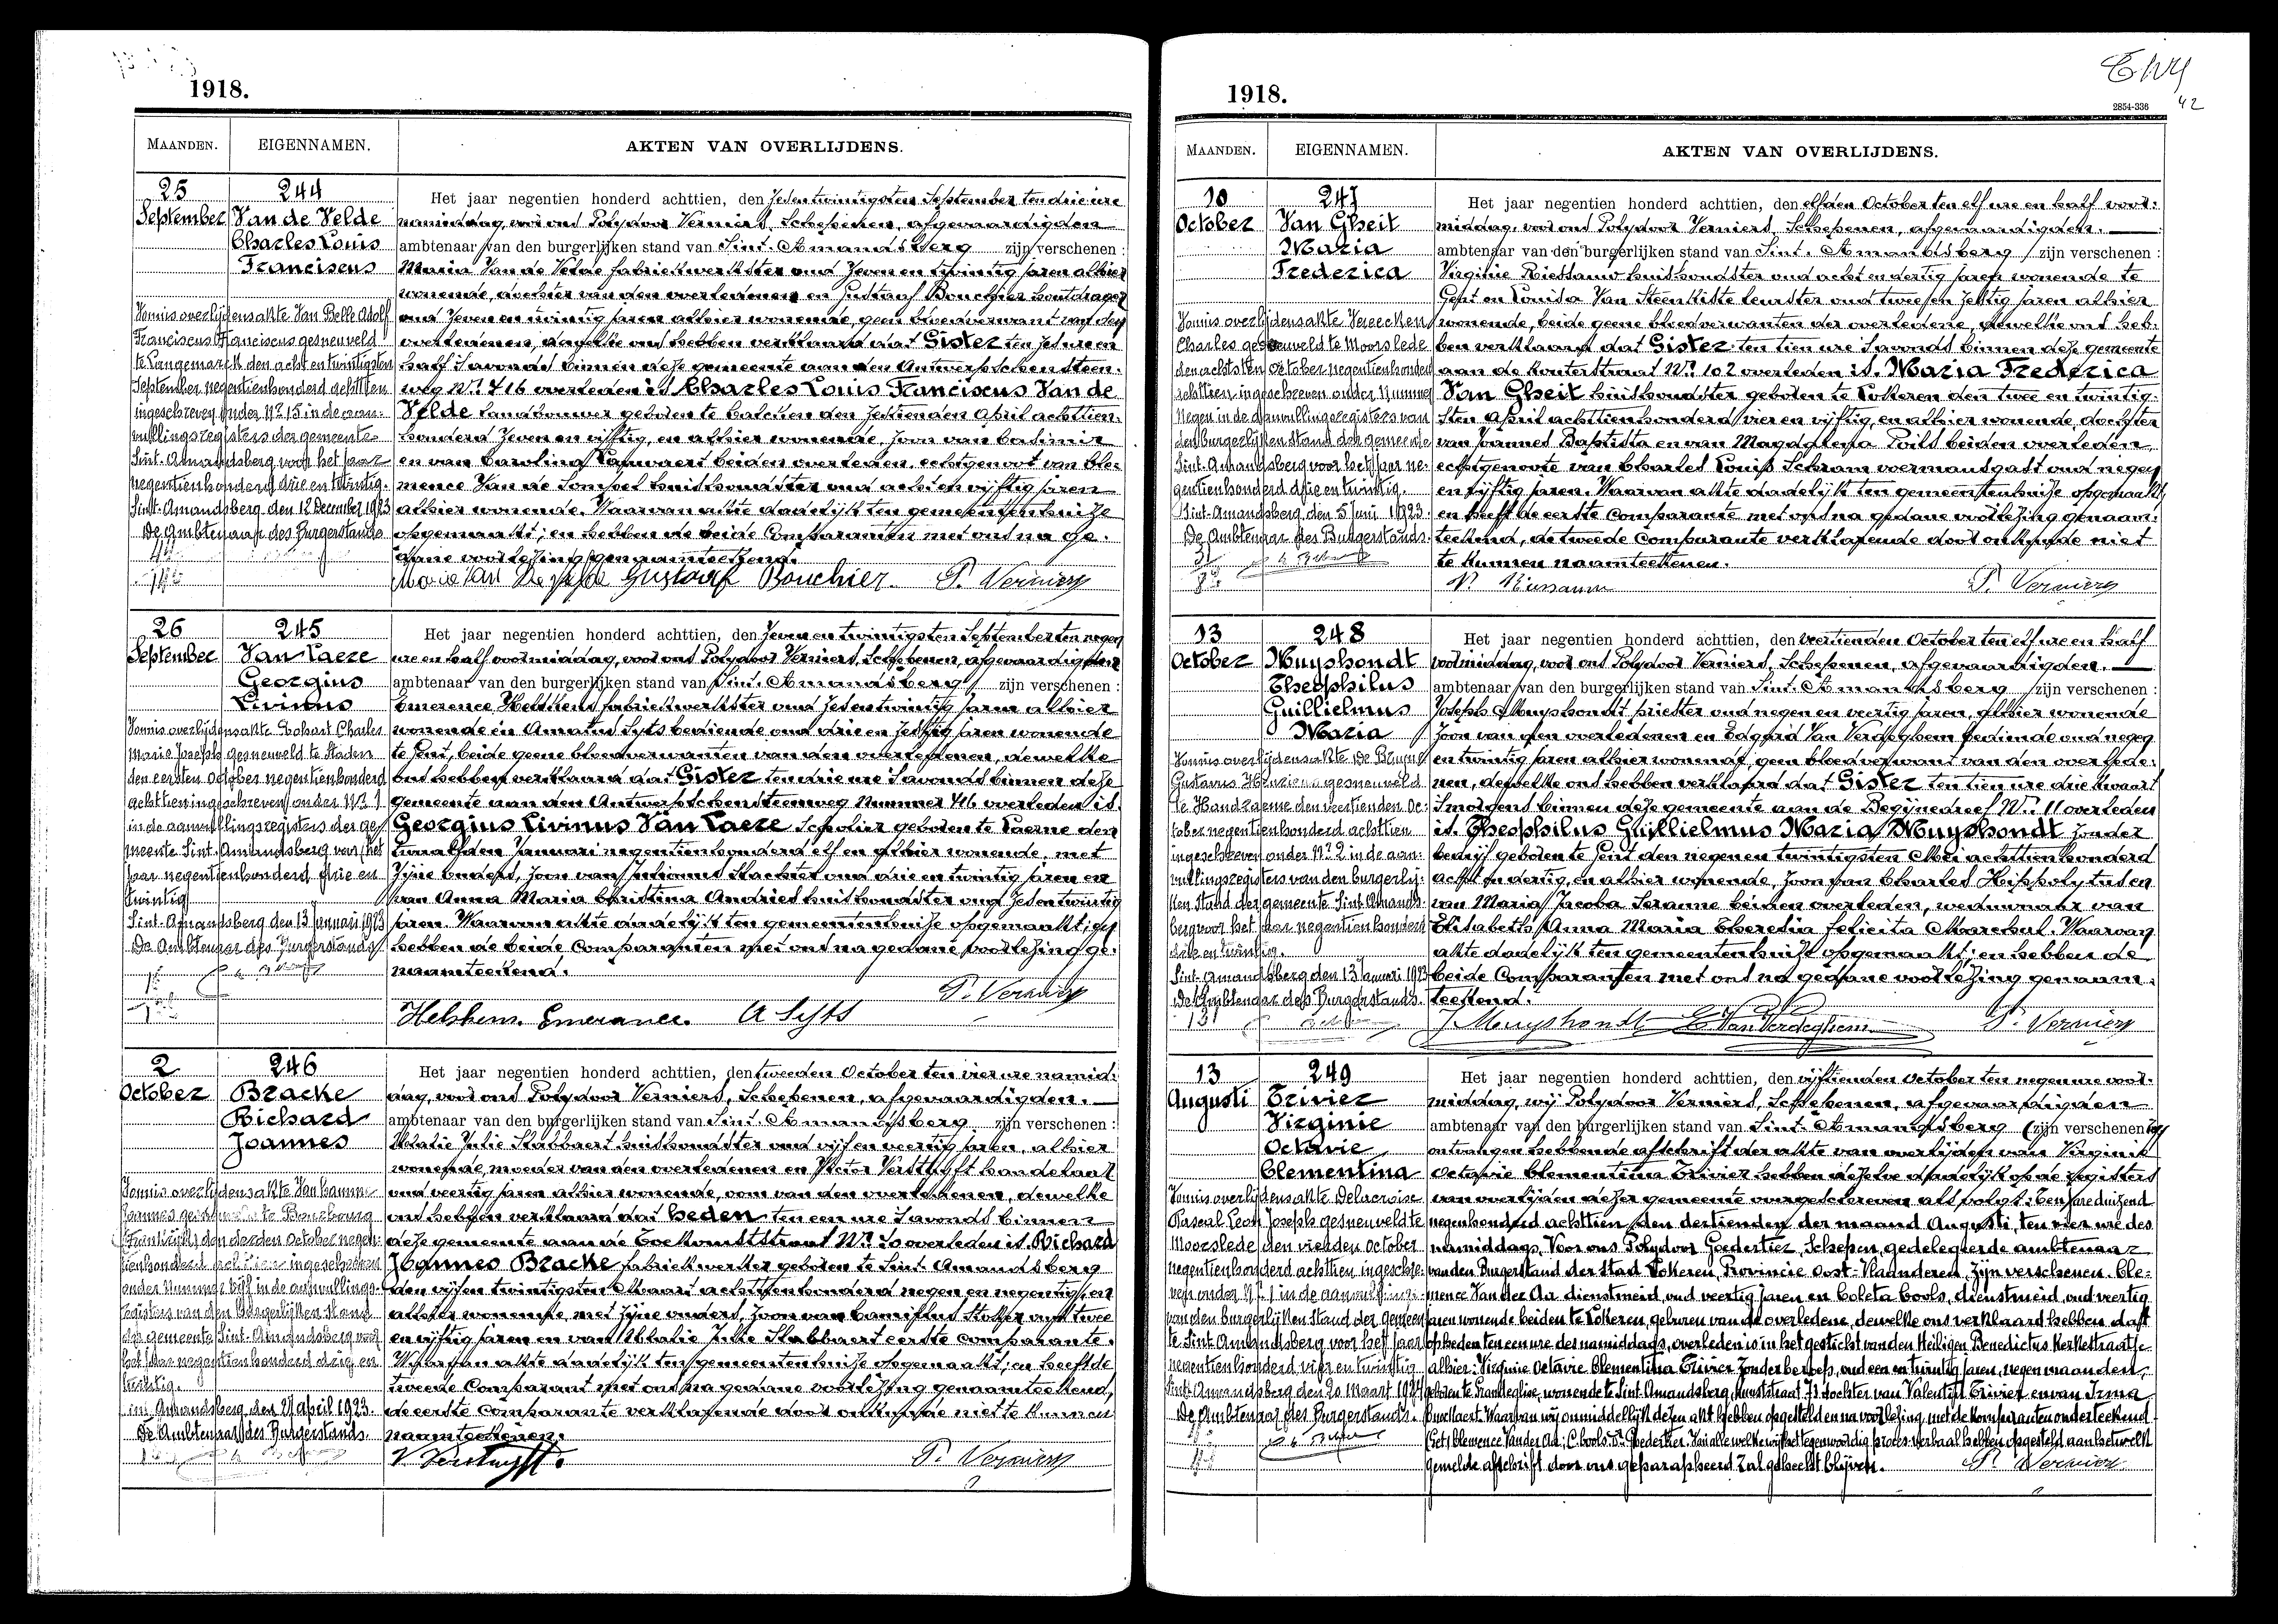 1918.
MAANDEN. EIGENNAMEN. AKTEN VAN OVERLIJDENS.
25 September
244
Van de Velde
Charles Louis
Franciscus
Het jaar negentien honderd achttien, den zesentwintigsten September ten drie ure
namiddag, voor ons Polydoor Verniers, Schepenen, afgevaardigden
ambtenaar van den burgerlijken stand van Sint-Amandsberg zijn verschenen:
Maria Van de Velde fabriekwerkster oud zeven en twintig jaren alhier
wonende, dochter van den overledenen en Gustaaf Bouchier houtdrager
oud zeven en twintig jaren alhier wonende, geen bloedverwant van den
overledenen, dewelke ons hebben verklaard dat Gister ten zes ure en
half s'avonds binnen deze gemeente aan den Antwerpschen Steen-
weg Nr. 416 overleden is Charles Louis Franciscus Van de
Velde landbouwer geboren te Calcken den zestienden April achttien-
honderd zeven en vijftig, en alhier wonende, zoon van Casimir
en van Carolina beiden overleden, echtgenoot van Cle-
mence Van de huishoudster oud acht en vijftig jaren
alhier wonende. Waarvan akte dadelijk ten gemeentenhuize
opgemaakt; en hebben de beide Comparanten met ons na ge-
dane voorlezing genaamteekend.
Gustaaf Bouchier. P. Verniers
Vonnis overlijdensakte Van Belle Adolf
Franciscus Franciscus gesneuveld
te Langemarck den acht en twintigsten
September negentienhonderd achttien
ingeschreven onder Nr. 15 in de aan-
vullingsregisters der gemeente
Sint-Amandsberg voor het jaar
negentienhonderd drie en twintig.
Sint-Amandsberg den 12 December 1923
De Ambtenaar des Burgerstands
26 September
245
Van Laere
Georgius
Livinus
Het jaar negentien honderd achttien, den zeven en twintigsten September ten negen
ure en half voormiddag, voor ons Polydoor Verniers, Schepenen, afgevaardigden
ambtenaar van den burgerlijken stand van Sint-Amandsberg zijn verschenen:
Emerence fabriekwerkster oud zesentwintig jaren alhier
wonende en Amatus Syts bediende oud drie en zestig jaren wonende
te Gent, beide geene bloedverwanten van den overledenen, dewelke
ons hebben verklaard dat Gister ten drie ure s'avonds binnen deze
gemeente aan den Antwerpschensteenweg Nummer 416 overleden is
Georgius Livinus Van Laere Scholier geboren te Laerne den
twaalfden Januari negentienhonderd elf en alhier wonende met
zijne ouders, zoon van oud drie en twintig jaren en
van Anna Maria Christina Andries huishoudster oud zesentwintig
jaren. Waarvan akte dadelijk ten gemeentenhuize opgemaakt; en
hebben de beide Comparanten met ons na gedane voorlezing ge-
naamteekend.
P. Verniers
A Syts
Vonnis overlijdensakte Charles
Marie Joseph gesneuveld te Staden
den eersten October negentienhonderd
achttien ingeschreven onder Nr. 1
in de aanvullingsregisters der ge-
meente Sint-Amandsberg van het
jaar negentienhonderd drie en
twintig
Sint-Amandsberg den 13 Januari 1923
De Ambtenaar des Burgerstands
2 October
246
Bracke
Richard
Joannes
Het jaar negentien honderd achttien, den tweeden October ten vier ure namid-
dag, voor ons Polydoor Verniers, Schepenen, afgevaardigden.
ambtenaar van den burgerlijken stand van Sint-Amandsberg zijn verschenen:
Julie Stabbaert huishoudster oud vijf en veertig jaren, alhier
wonende, moeder van den overledenen en Victor handelaar
oud veertig jaren alhier wonende, oom van den overledenen, dewelke
ons hebben verklaard dat heden ten een ure s'avonds binnen
deze gemeente aan de Toekomststraat Nr. overleden is Richard
Joannes Bracke fabriekwerker geboren te Sint-Amandsberg
den vijfen twintigsten Maart achttienhonderd negen en negentig, en
alhier wonende met zijne ouders, zoon van Camillus oud twee
en vijftig jaren en van Julie Stabbaert eerste comparante.
Waarvan akte dadelijk ten gemeentenhuize opgemaakt; en heeft de
tweede Comparant met ons na gedane voorlezing genaamteekend,
de eerste Comparante verklarende door onkunde niet te kunnen
naamteekenen.
P. Verniers
Vonnis overlijdensakte
den October negen-
tienhonderd achttien ingeschreven
onder Nummer in de aanvullings-
registers van den Burgerlijken Stand
der gemeente Sint-Amandsberg voor
het jaar negentienhonderd drie en
twintig.
Sint-Amandsberg, den April 1923.
De Ambtenaar des Burgerstands.
1918.
2854-336
42
MAANDEN. EIGENNAMEN. AKTEN VAN OVERLIJDENS.
10 October
247
Van Gheit
Maria
Frederica
Het jaar negentien honderd achttien, den elfden October ten elf ure en half voor-
middag, voor ons Polydoor Verniers, Schepenen, afgevaardigden.
ambtenaar van den burgerlijken stand van Sint-Amandsberg zijn verschenen:
Virginie huishoudster oud acht en dertig jaren wonende te
Gent en Louisa Van Steenkiste leurster oud twee en zestig jaren alhier
wonende, beide geene bloedverwanten der overledene, dewelke ons heb-
ben verklaard dat Gister ten tien ure s'avonds binnen deze gemeente
aan de Kouterstraat Nr. 102 overleden is. Maria Frederica
Van Gheit huishoudster geboren te Lokeren den twee en twintig-
sten April achttienhonderd vier en vijftig, en alhier wonende, dochter
van Joannes Baptista en van Magdalena beiden overleden
echtgenoote van Charles Louis Schram voermansgast oud negen
en vijftig jaren. Waarvan akte dadelijk ten gemeentenhuize opgemaakt,
en heeft de eerste Comparante met ons na gedane voorlezing genaam-
teekend, de tweede Comparante verklarende door onkunde niet
te kunnen naamteekenen.
P. Verniers
Vonnis overlijdensakte Vereecken
Charles gesneuveld te Moorslede
den achtsten October negentienhonderd
achttien, ingeschreven onder Nummer
Negen in de aanvullingsregisters van
den burgerlijken stand der gemeente
Sint-Amandsberg voor het jaar ne-
gentienhonderd drie en twintig.
Sint-Amandsberg, den 5 Juni 1923.
De Ambtenaar des Burgerstands.
13 October
248
Muyshondt
Theophilus
Guillielmus
Maria
Het jaar negentien honderd achttien, den veertienden October ten elf ure en half
voormiddag, voor ons Polydoor Verniers, Schepenen, afgevaardigden.
ambtenaar van den burgerlijken stand van Sint-Amandsberg zijn verschenen:
Joseph Muyshondt priester oud negen en veertig jaren, alhier wonende
zoon van den overledenen en Edgard Van Verdeghem bediende oud negen
en twintig jaren alhier wonende, geen bloedverwant van den overlede-
nen, dewelke ons hebben verklaard dat Gister ten tien ure drie kwaart
s'morgens binnen deze gemeente aan de Begijnedreef Nr. 11 overleden
is. Theophilus Guillielmus Maria Muyshondt zonder
bedrijf geboren te Gent den negenen twintigsten Mei achttienhonderd
acht en dertig, en alhier wonende, zoon van Charles Hippolytus en
van Maria Jacoba beiden overleden, weduwnaar van
Elisabeth Anna Maria Theresia Felicita Marechal. Waarvan
akte dadelijk ten gemeentenhuize opgemaakt; en hebben de
beide Comparanten met ons na gedane voorlezing genaam-
teekend.
J. Muyshondt E. Van Verdeghem P. Verniers
Vonnis overlijdensakte De
Gustavus gesneuveld
te Handzaeme den veertienden Oc-
tober negentienhonderd achttien
ingeschreven onder Nr. 2 in de aan-
vullingsregisters van den burgerlij-
ken stand der gemeente Sint-Amands-
berg voor het jaar negentienhonderd
drie en twintig.
Sint-Amandsberg den 13 Januari 1923
De Ambtenaar des Burgerstands.
13 Augusti
249
Trivier
Virginie
Octavie
Clementina
Het jaar negentien honderd achttien, den vijftienden October ten negen ure voor-
middag, wij Polydoor Verniers, Schepenen, afgevaardigden
ambtenaar van den burgerlijken stand van Sint-Amandsberg (zijn verschenen
ontvangen hebbende afschrift der akte van overlijden van Virginie
Octavie Clementina Trivier hebben dezelve dadelijk op de registers
van overlijden dezer gemeente overgeschreven als volgt: Een jare duizend
negenhonderd achttien, den dertienden der maand Augusti, ten vier ure des
namiddags, Voor ons Polydoor Goedertier, Schepen, gedelegeerde ambtenaar
van den Burgerstand der Stad Lokeren, Provincie Oost-Vlaanderen, zijn verschenen. Cle-
mence Van der Aa dienstmeid, oud veertig jaren en Coleta Cools, dienstmeid, oud veertig
jaren wonende beiden te Lokeren, geburen van de overledene, dewelke ons verklaard hebben dat
op heden ten een ure des namiddags, overleden is in het gesticht van den Heiligen Benedictus Kerkstraatje
alhier: Virginie Octavie Clementina Trivier zonder beroep, oud een en twintig jaren, negen maanden,
geboren te Grandeglise, wonende te Sint-Amandsberg, 73 dochter van Valentijn Trivier en van Irma
Waarvan wij onmiddellijk dezen akt hebben opgesteld en na voorlezing, met de komparanten onderteekend
(Get) Clemence Vander Aa; C. Cools, P. Goedertier. Van alle welke wij het tegenwoordig proces-verbaal hebben opgesteld aan hetwelk
gemelde afschrift door ons geparapheerd zal gehecht blijven. P. Verniers
Vonnis overlijdensakte Delacroise
Pascal Leon Joseph gesneuveld te
Moorslede den vierden October
negentienhonderd achttien ingeschre-
ven onder Nr. 1 in de
van den burgerlijken Stand der gemeen-
te Sint-Amandsberg voor het jaar
negentienhonderd vier en twintig
Sint-Amandsberg den 20 Maart 1924
De Ambtenaar des Burgerstands.